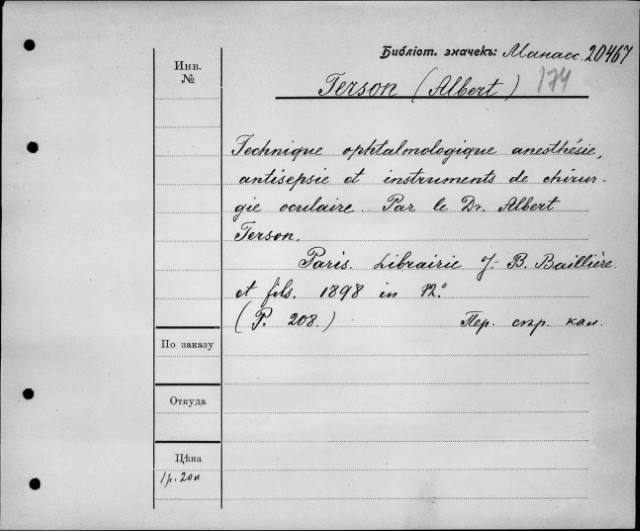 Библіот. значекъ: Манас. 20467
Инв.
№
Terson (Albert) 174
Technique ophtalmologique anesthésie,
antisepsie et instruments de chirur-
gie oculaire. Par le Dr. Albert
Terson.
Paris. Librairie J.-B. Baillière
et fils. 1898 in 12.º
(P. 208.) Пер. стр. кол.
По заказу
Откуда
Цѣна
1р. 20к